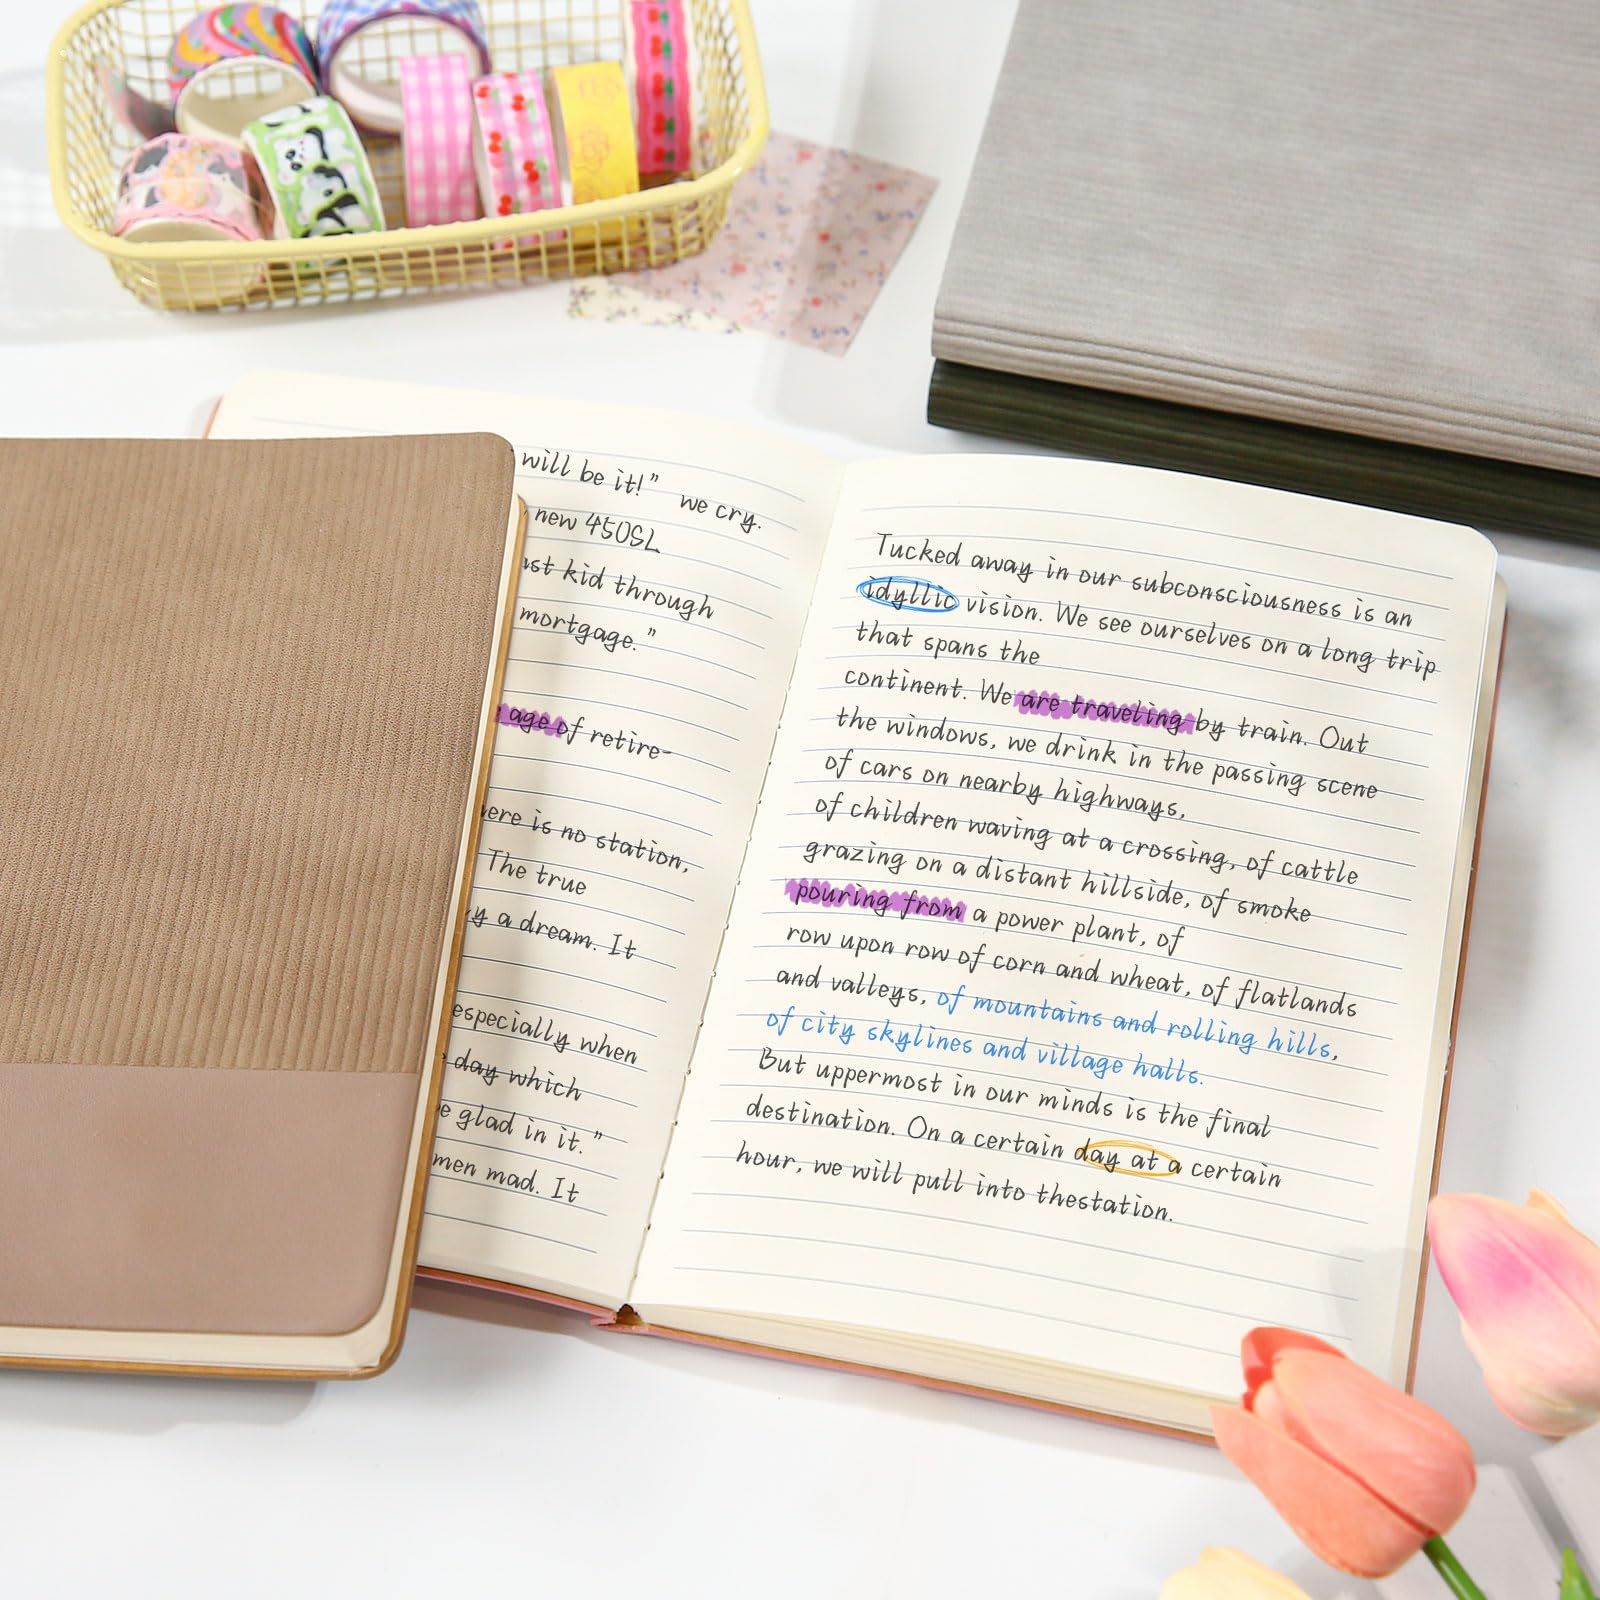 will be it!" we cry.
new 450SL
kid through
mortgage."
age of retire-
is no station,
The true
a dream. It
especially when
day which
glad in it."
men mad. It
Tucked away in our subconsciousness is an
idyllic vision. We see ourselves on a long trip
that spans the
continent. We are traveling by train. Out
the windows, we drink in the passing scene
of cars on nearby highways,
of children waving at a crossing, of cattle
grazing on a distant hillside, of smoke
pouring from a power plant, of
row upon row of corn and wheat, of flatlands
and valleys, of mountains and rolling hills,
of city skylines and village halls.
But uppermost in our minds is the final
destination. On a certain day at a certain
hour, we will pull into thestation.